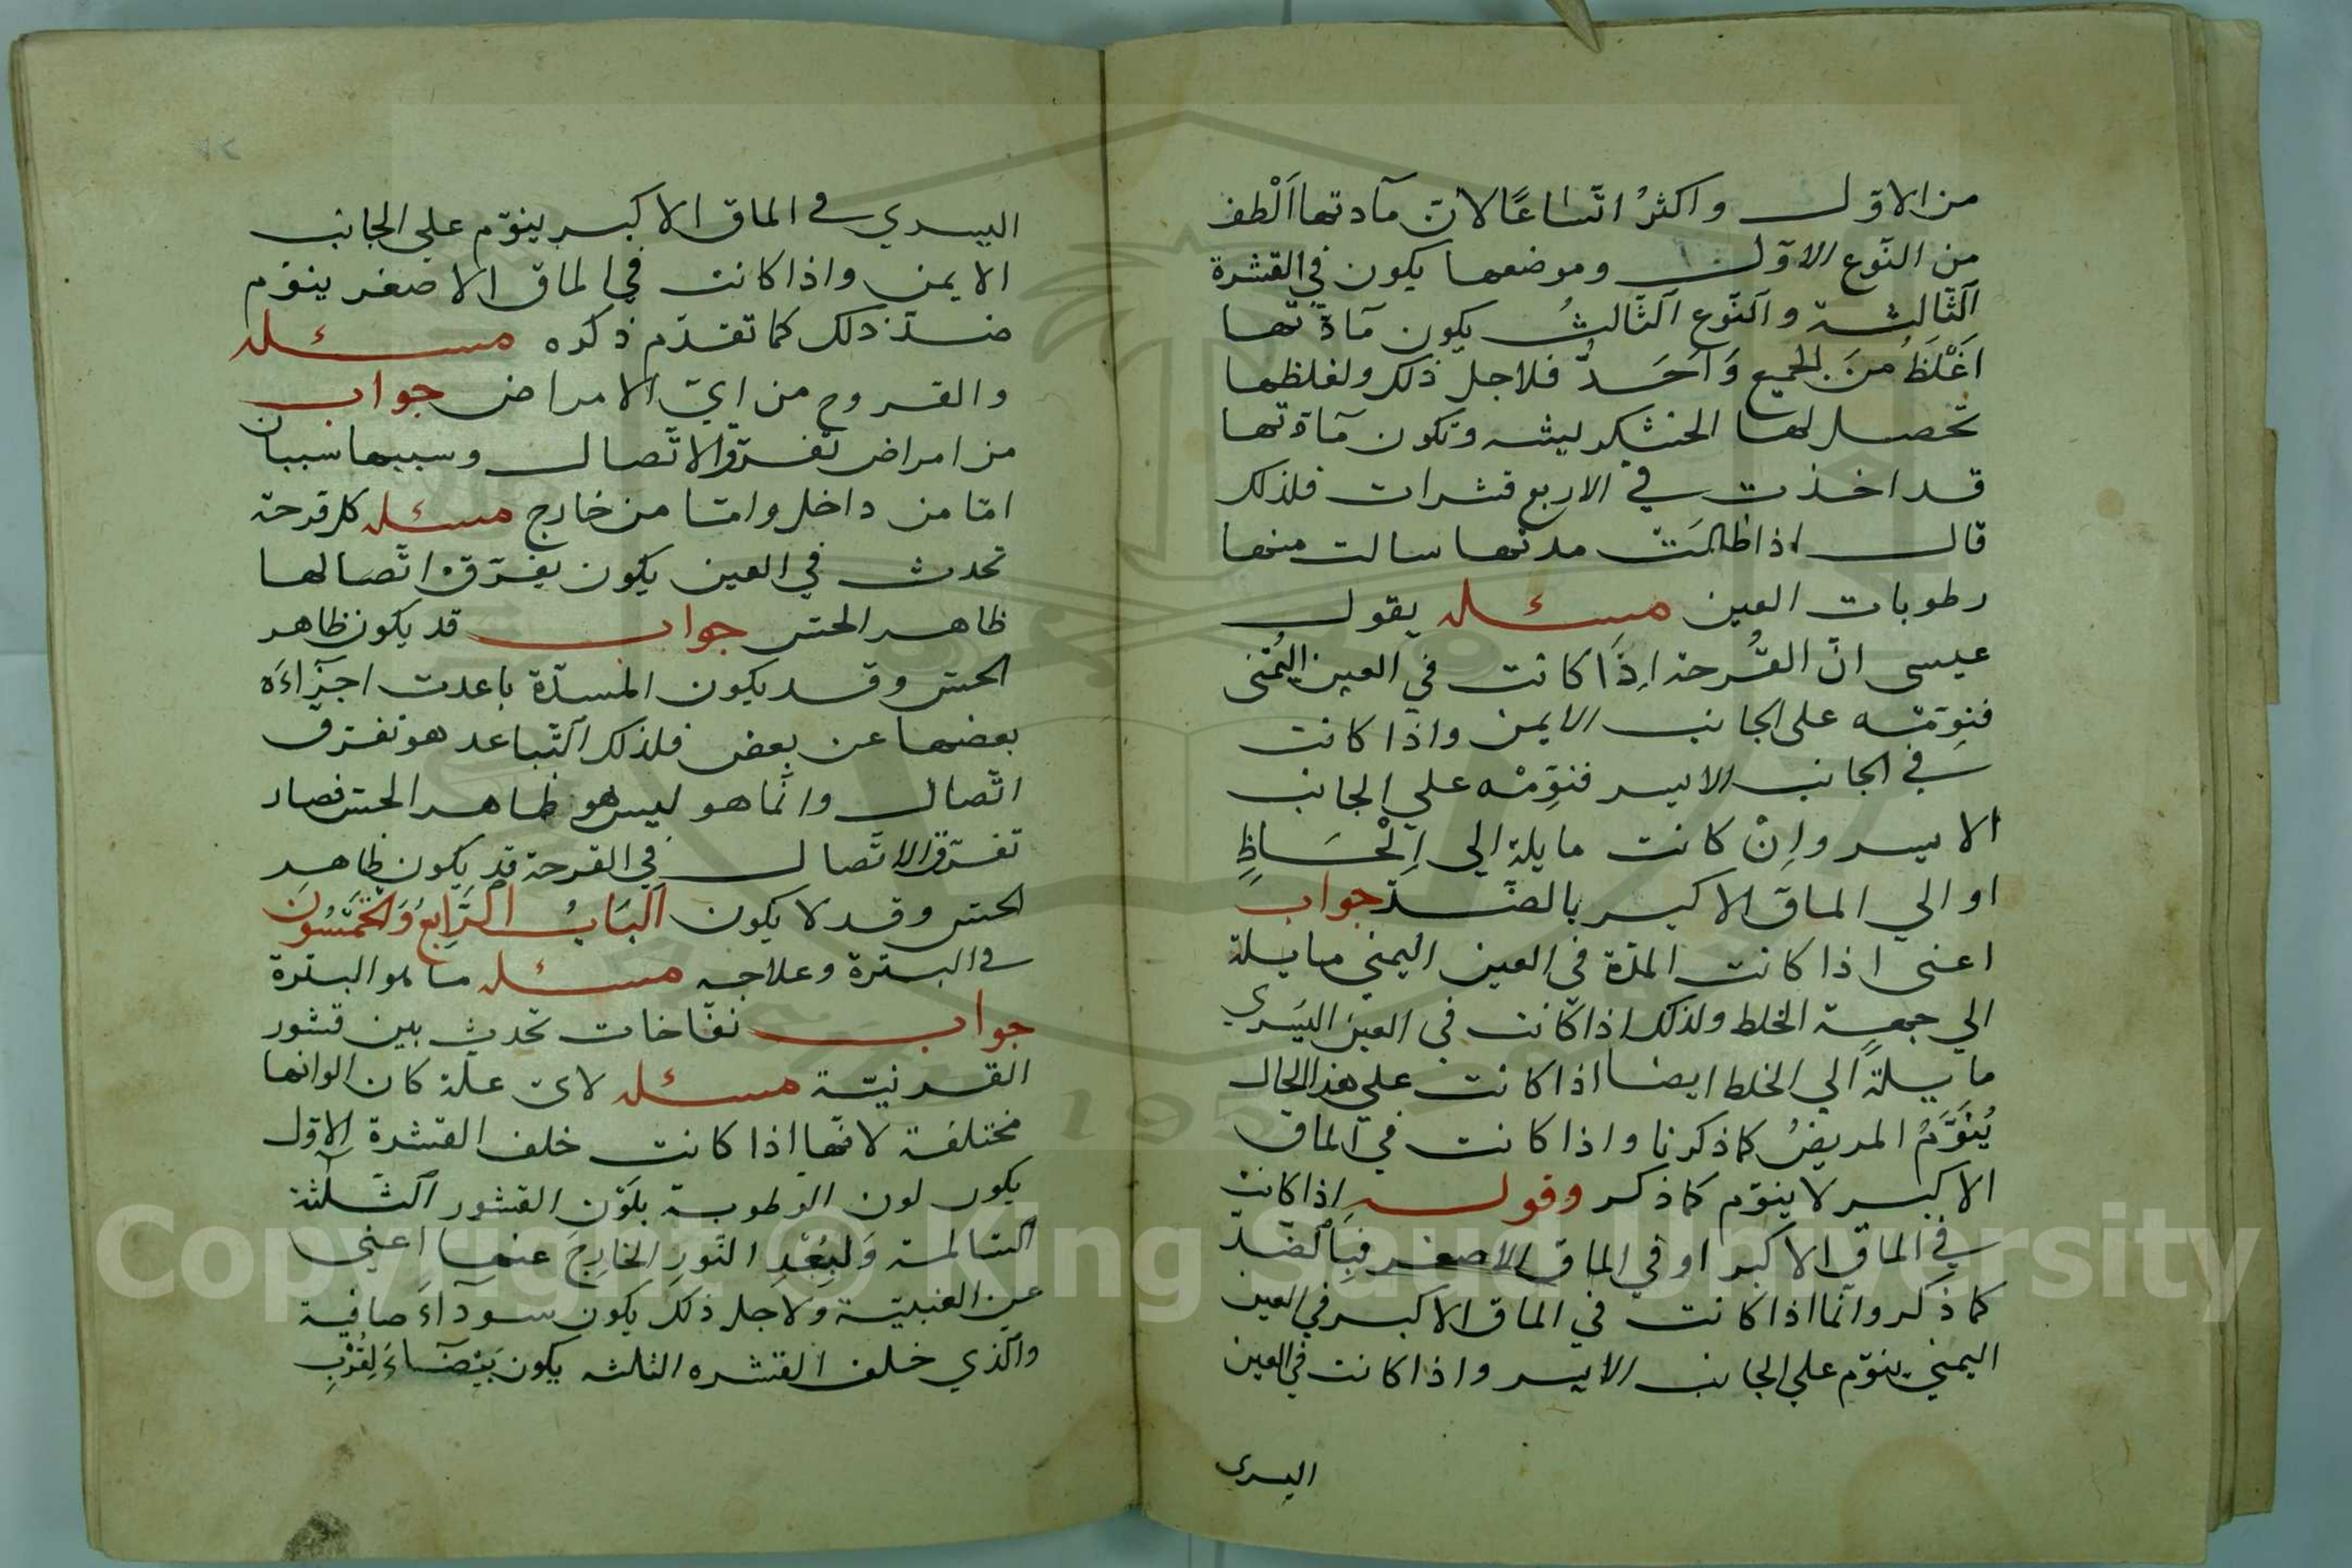 من الاوّل واكثرُ اتّساعًا لانّ مآدتها اَلْطف
من النّوع الاوّل وموضعها يكون في القشرة
اَلثّالثة واَلنّوع اَلثّالثُ يكون مآدّتها
اَغْلَظُ منَ الجميع وَاَحَدُّ فلاجل ذلك ولغلظها
تحصل لها الخشكريشه وتكون مآدّتها
قد اخذت في الاربع قشرات فلذلك
قال اذا طالَتْ مدتها سالت منها
رطوبات العين مسئله يقول
عيسى انّ القُرحة اِذَا كانت في العين اليُمْنى
فنوِّمْه على الجانب الايمن واذا كانت
في الجانب الايسر فنوِّمْه علي الجانب
الايسر واِنْ كانت مايلة الي اِلْحَاظِ
او الي الماق الاكبر بالضّد جواب
اعنى اذا كانت المدّة في العين اليمني مايلة
الي جهة الخلط ولذلك اذا كانت في العين اليسري
مايلةً الي الخلط ايضا اذا كانت علي هذا الحال
يُنَوَّمُ المريضُ كما ذكرنا واذا كانت في الماق
الاكبر لا ينوّم كما ذكر وقوله اِذا كانت
في الماق الاكبر او في الماق الاصغر فبِاَلضّد
كما ذكر وانّما اذا كانت في الماق الاكبر في العين
اليمني ينوّم علي الجانب الايسر واذا كانت في العين
اليسرى
اليسري في الماق الاكبر ينوّم علي الجانب
الايمن واذا كانت في الماق الاصغر ينوّم
ضدّ ذلك كما تقدّم ذكره مسئله
والقروح من ايّ الامراض جواب
من امراض تفرّق الاتّصال وسببها سببان
امّا من داخل وامّا من خارج مسئله كل قرحة
تحدث في العين يكون يفرّق اتّصالها
ظاهر الحس جواب قد يكون ظاهر
الحس وقد يكون المسدّة باعدت اجزآءَه
بعضها عن بعض فلذلك اَلتّباعد هو تفرّق
اتّصال وانّما هو ليس هو ظاهر الحس فصار
تفرّق الاتّصال في القرحة قد يكون ظاهر
الحس وقد لا يكون اَلبَابُ اَلرَّابِعُ وَالخَمْسُونَ
في البثرة وعلاجه مسئله ما هو البثرة
جواب نفّاخات تحدث بين قشور
القرنيّة مسئله لايّ علّة كان الوانها
مختلفة لانّها اذا كانت خلف القشرة الاوّل
يكون لون الرطوبة بلَوْن القشور اَلثّلثة
السّالمة وَلِبُعْدِ النّورِ الخارِج عنها اعني
عن العنبيّة ولاجل ذلك يكون سودآءَ صافية
واَلّذي خلف القشره الثالثه يكون بَيْضَآءَ لِقُرْبِ